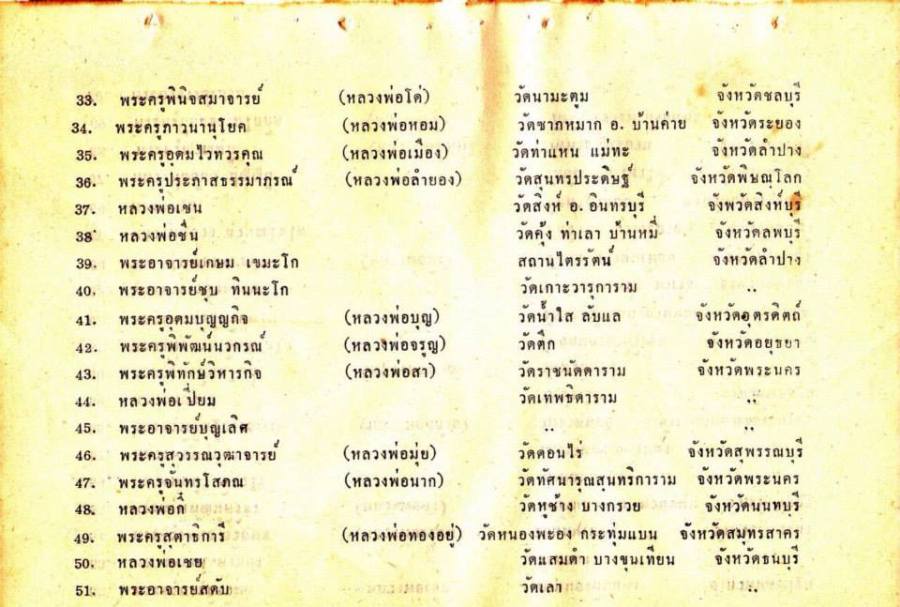 33. พระครูพินิจสมาจารย์ (หลวงพ่อโด่) วัดนามะตูม จังหวัดชลบุรี
34. พระครูภาวนานุโยค (หลวงพ่อหอม) วัดซากหมาก อ. บ้านค่าย จังหวัดระยอง
35. พระครูอุดมไวทวรคุณ (หลวงพ่อเมือง) วัดท่าแหน แม่ทะ จังหวัดลำปาง
36. พระครูประภาสธรรมาภรณ์ (หลวงพ่อลำยอง) วัดสุนทรประดิษฐ์ จังหวัดพิษณุโลก
37. หลวงพ่อเชน วัดสิงห์ อ. อินทรบุรี จังหวัดสิงห์บุรี
38 หลวงพ่อชื่น วัดคุ้ง ท่าเลา บ้านหมี่ จังหวัดลพบุรี
39. พระอาจารย์เกษม เขมะโก สถานไตรรัตน์ จังหวัดลำปาง
40. พระอาจารย์ชุบ ทินนะโก วัดเกาะวารุการาม ..
41. พระครูอุดมบุญญกิจ (หลวงพ่อบุญ) วัดน้ำใส ลับแล จังหวัดอุตรดิตถ์
42. พระครูพิพัฒน์นวกรณ์ (หลวงพ่อจรูญ) วัดตึก จังหวัดอยุธยา
43. พระครูพิทักษ์วิหารกิจ (หลวงพ่อสา) วัดราชนัดดาราม จังหวัดพระนคร
44. หลวงพ่อเปี่ยม วัดเทพธิดาราม ..
45. พระอาจารย์บุญเลิศ .. ..
46. พระครูสุวรรณวุฒาจารย์ (หลวงพ่อมุ่ย) วัดดอนไร่ จังหวัดสุพรรณบุรี
47. พระครูจันทรโสภณ (หลวงพ่อนาก) วัดทัศนารุณสุนทริการาม จังหวัดพระนคร
48. หลวงพ่อกี๋ วัดหูช้าง บางกรวย จังหวัดนนทบุรี
49. พระครูสุตาธิการี (หลวงพ่อทองอยู่) วัดหนองพะอง กระทุ่มแบน จังหวัดสมุทรสาคร
50. หลวงพ่อเชย วัดแสมดำ บางขุนเทียน จังหวัดธนบุรี
51. พระอาจารย์สดับ วัดเลา ..